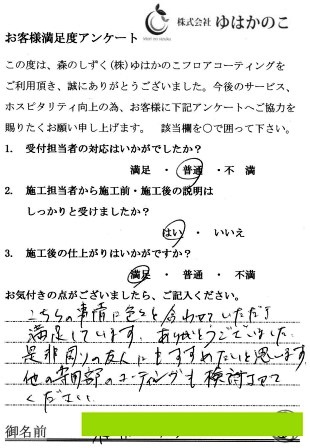 株式会社 ゆはかのこ
お客様満足度アンケート
この度は、森のしずく(株)ゆはかのこフロアコーティングを
ご利用頂き、誠にありがとうございました。今後のサービス、
ホスピタリティ向上の為、お客様に下記アンケートへご協力を
賜りたくお願い申し上げます。 該当欄を〇で囲って下さい。
1. 受付担当者の対応はいかがでしたか?
満足 ・ 普通 ・ 不 満
2. 施工担当者から施工前・施工後の説明は
しっかりと受けましたか?
はい ・ いいえ
3. 施工後の仕上がりはいかがですか?
満足 ・ 普通 ・ 不満
お気付きの点がございましたら、ご記入ください。
こちらの事情に色々と合わせていただき
満足しています。ありがとうございました。
是非周りの友人にもすすめたいと思います
他の専門部のコーティングも検討させて
ください
御名前